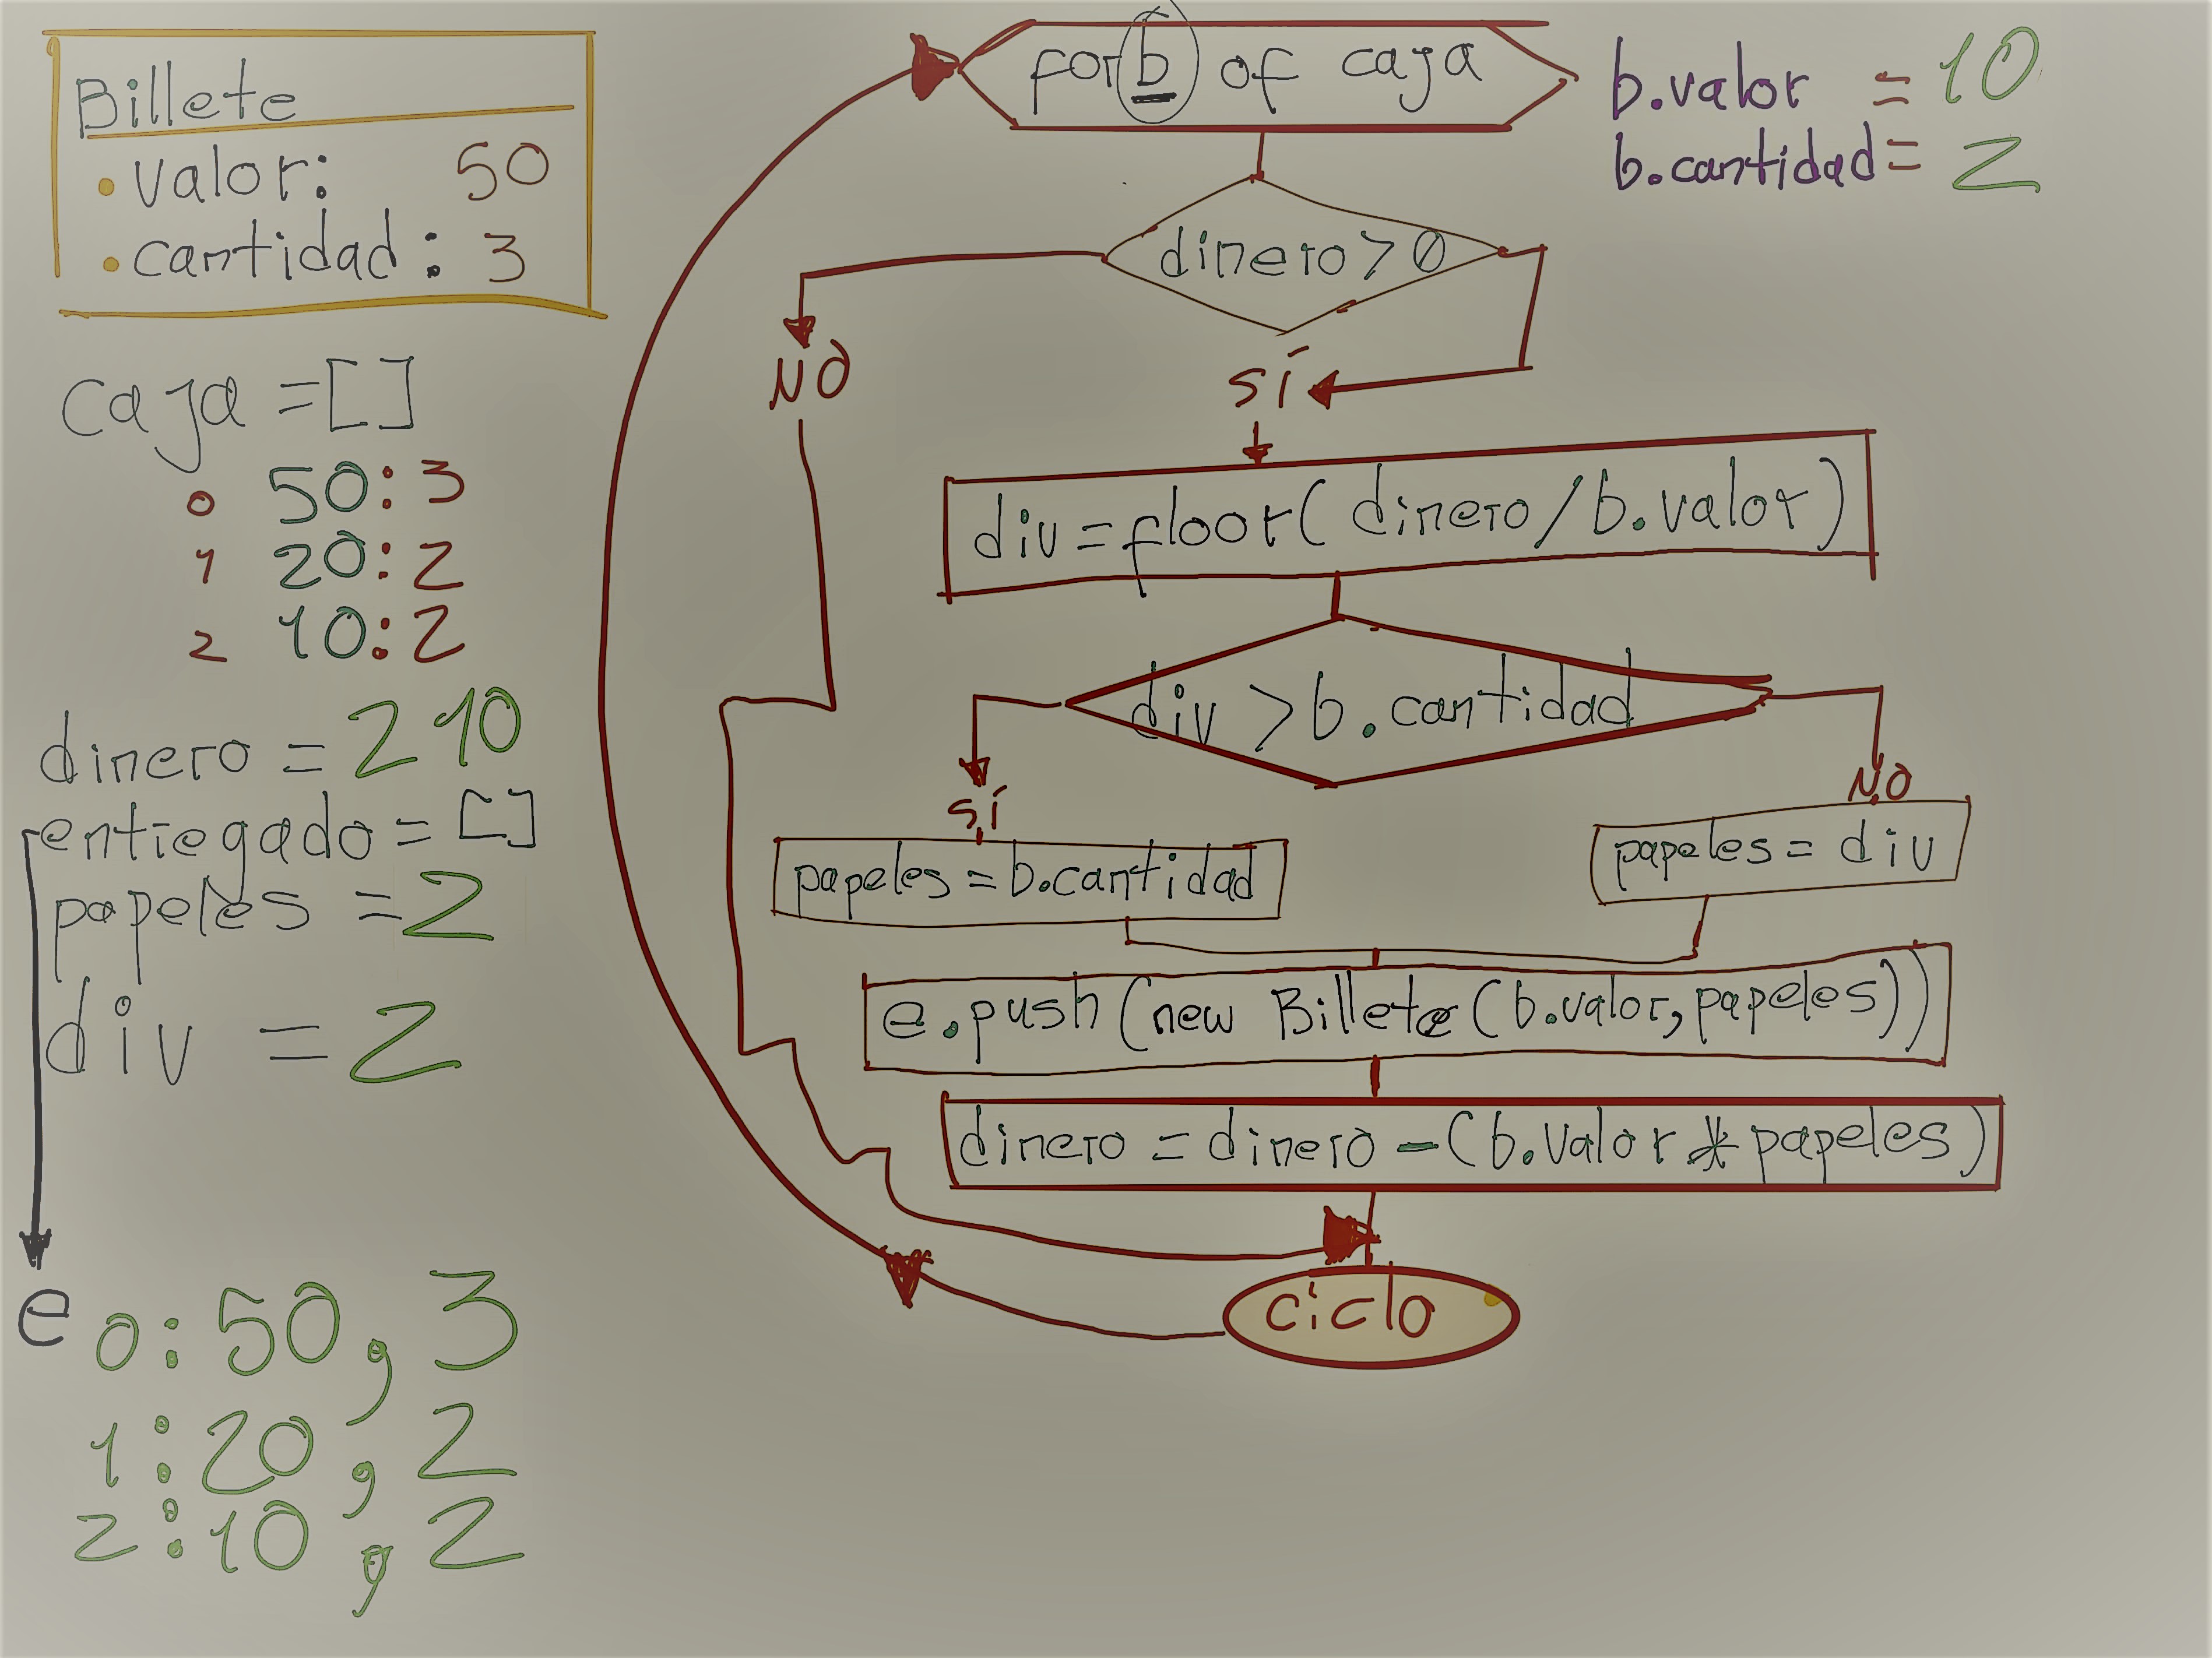 Billete
• valor: 50
• cantidad: 3
caja = []
0 50:3
1 20:2
2 10:2
dinero = 210
entregado = []
papeles = 2
div = 2
e 0:50,3
1:20,2
2:10,2
for b of caja
b.valor = 10
b.cantidad = 2
dinero > 0
NO
SÍ
div = floor( dinero / b.valor )
div > b.cantidad
SÍ
NO
papeles = b.cantidad
papeles = div
e.push(new Billete(b.valor, papeles))
dinero = dinero - (b.valor * papeles)
ciclo